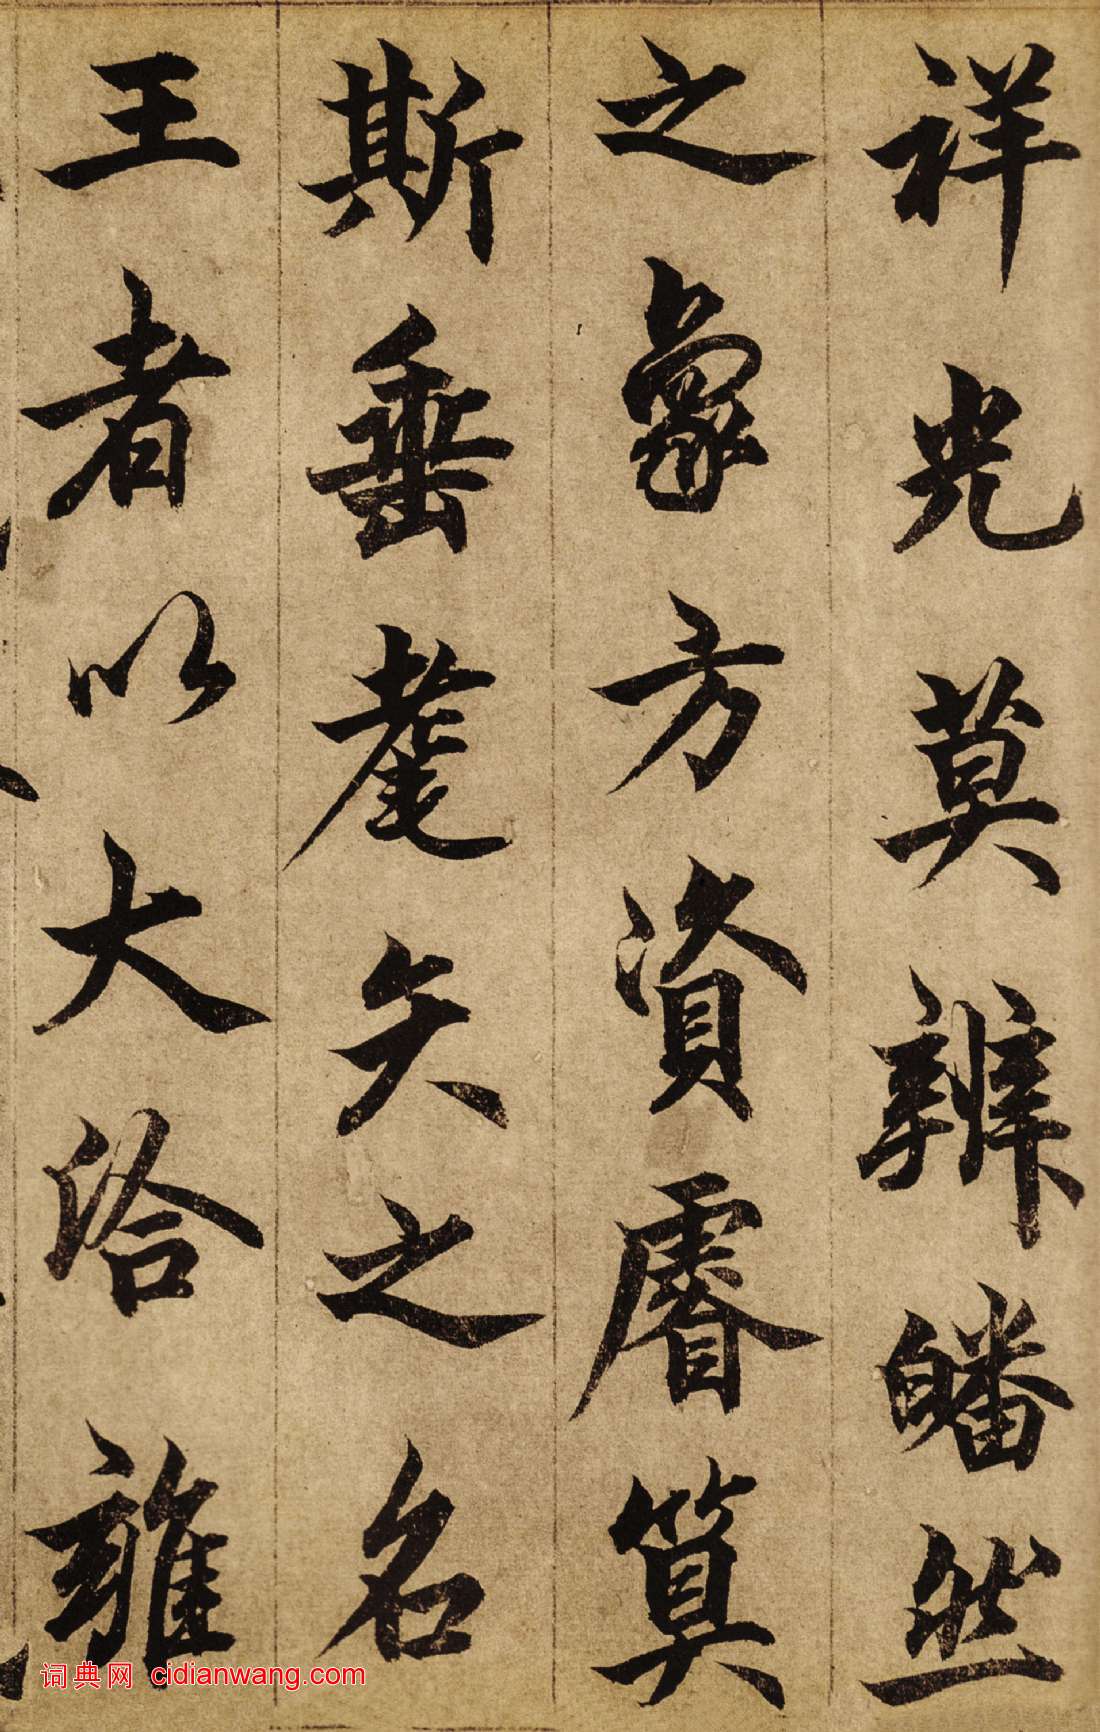 祥光莫辨皤然
之象方資睿算
斯垂耄矣之名
王者以大洽雍
词典网 cidianwang.com